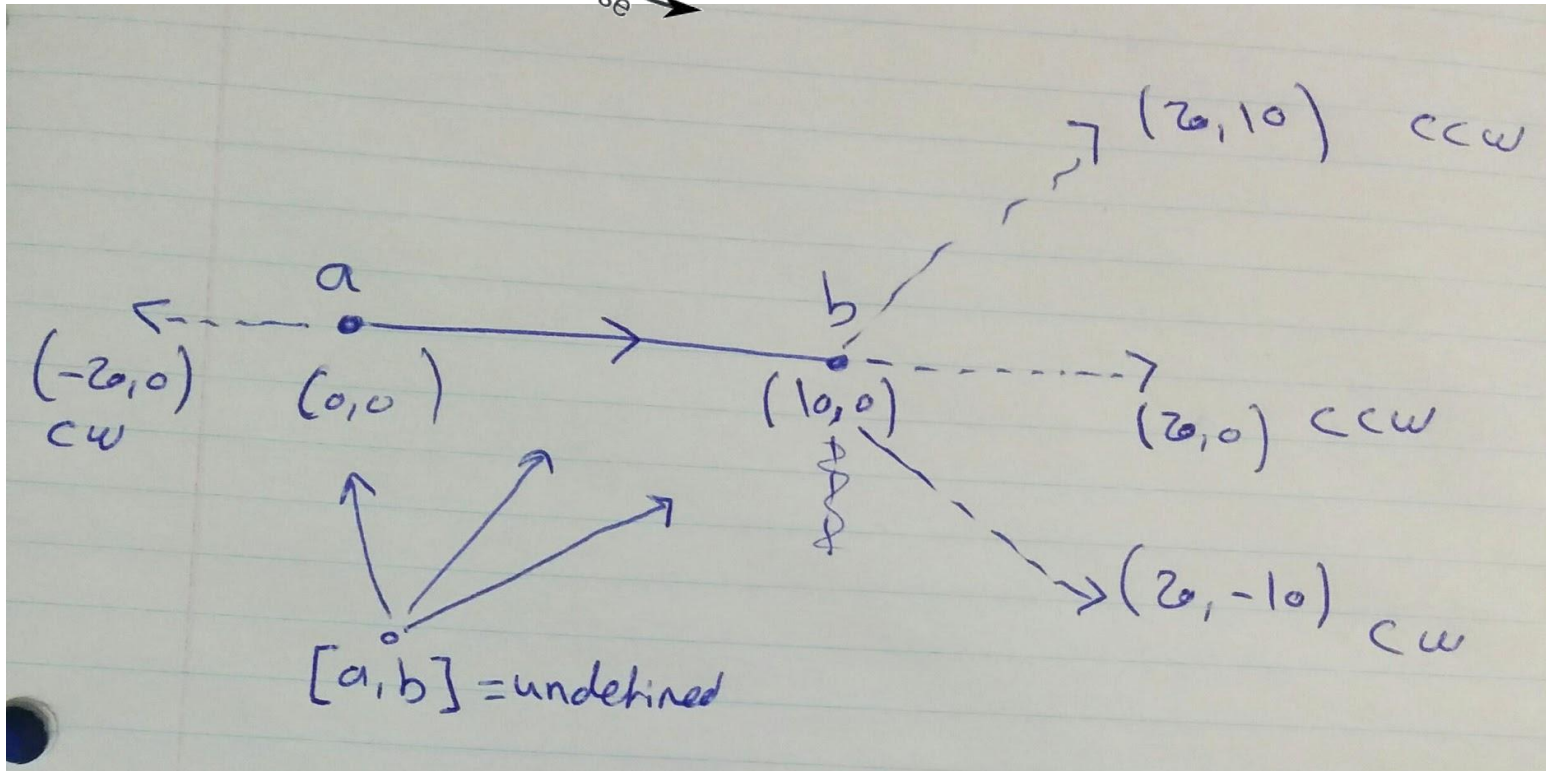 se
(20,10) ccw
a
b
(-20,0)
cw
(0,0)
(10,0)
(20,0) ccw
(20,-10)
cw
[a,b] = undefined